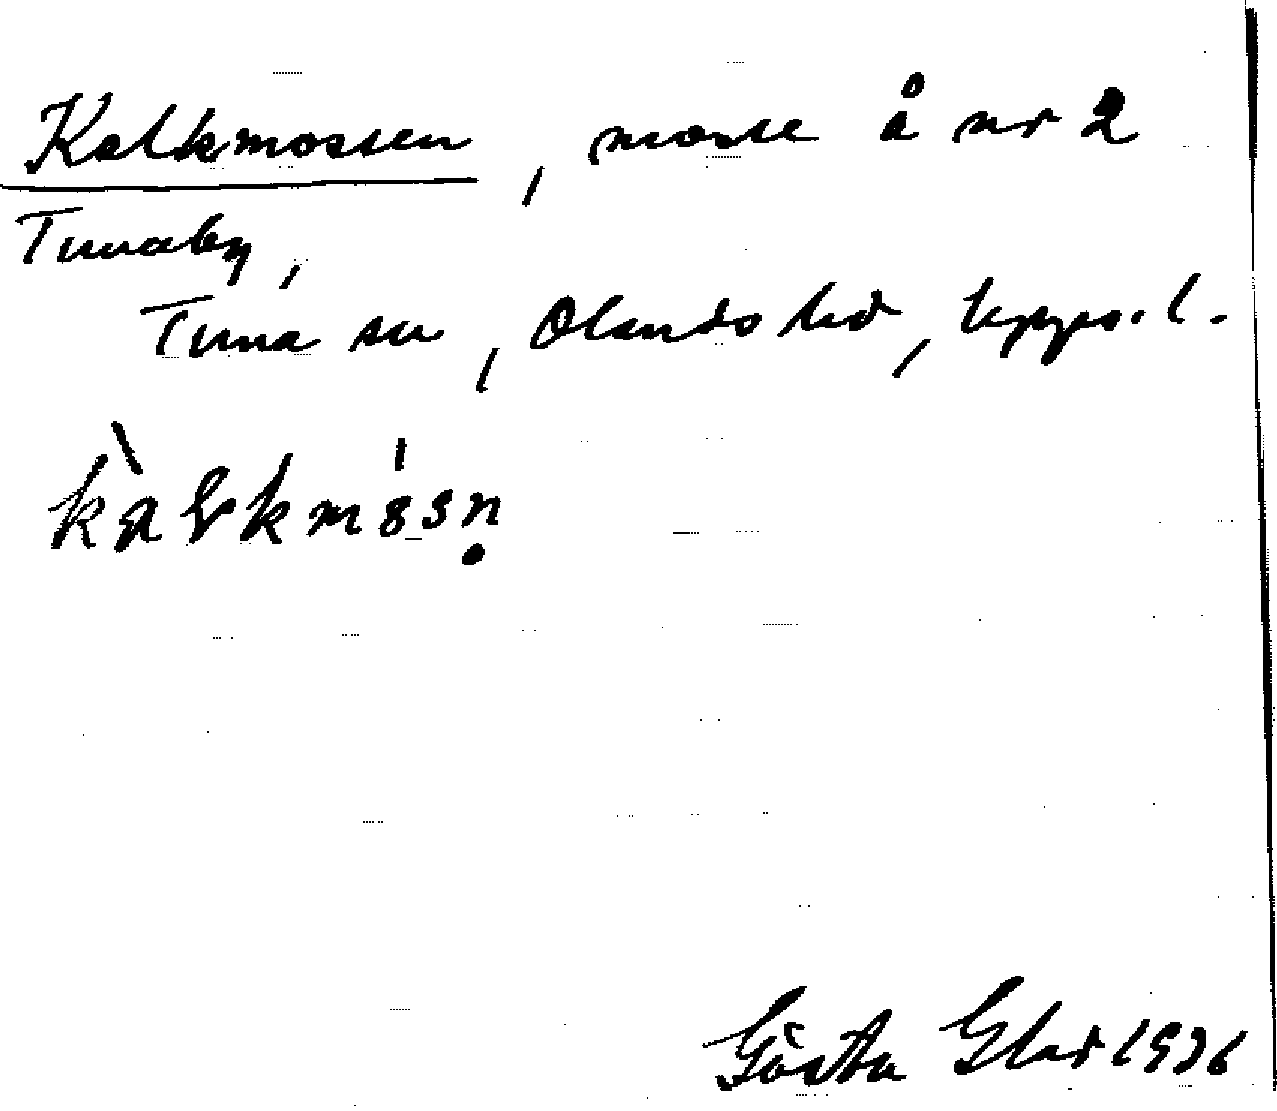 Kalkmossen, mosse å nr 2
Tunaby,
Tuna sn, Olands hd, Upps. l.
kàlkmósṇ
Gösta 1936